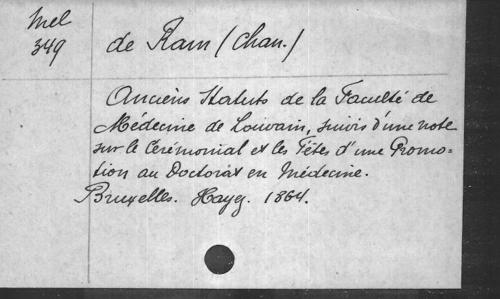 Mel
349
de Ram (Chan.)
Anciens Statuts de la Faculté de
Médecine de Louvain, suivis d'une note
sur le Cérémonial et les Fêtes d'une Promo-
tion au Doctorat en Médecine.
Bruxelles. Hayez. 1864.